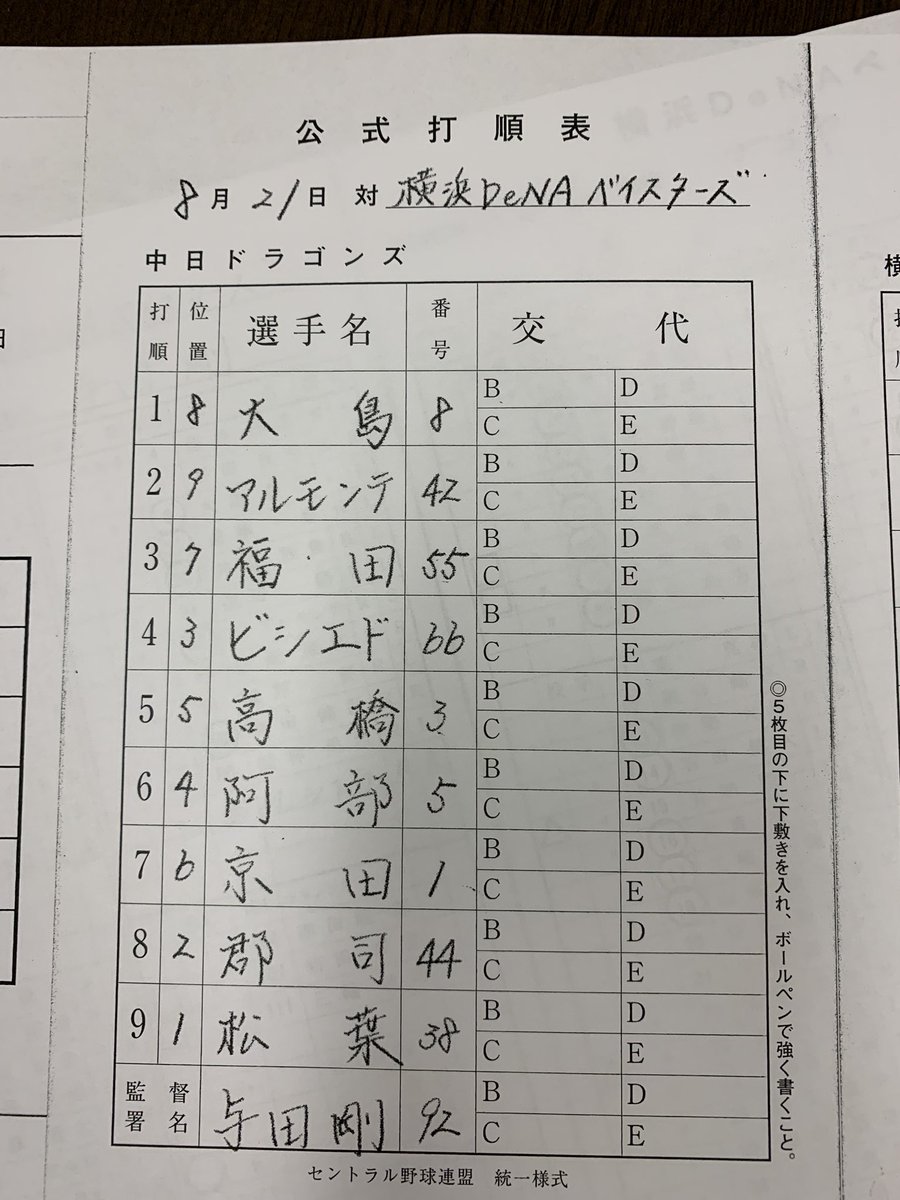 公式打順表
8月21日 対 横浜DeNAベイスターズ
中日ドラゴンズ
打順 位置 選手名 番号 交代
1 8 大島 8 B D C E
2 9 アルモンテ 42 B D C E
3 7 福田 55 B D C E
4 3 ビシエド 66 B D C E
5 5 高橋 3 B D C E
6 4 阿部 5 B D C E
7 6 京田 1 B D C E
8 2 郡司 44 B D C E
9 1 松葉 38 B D C E
監督署名 与田剛 92 B D C E
セントラル野球連盟 統一様式
◎5枚目の下に下敷きを入れ、ボールペンで強く書くこと。
横